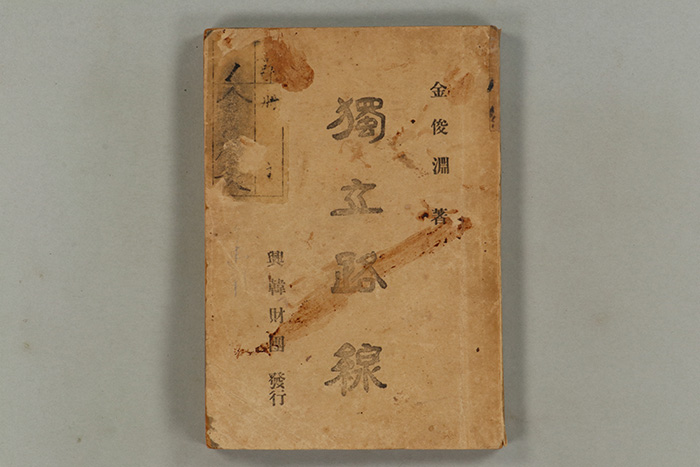 金俊淵 著
獨立路線
興韓財團 發行